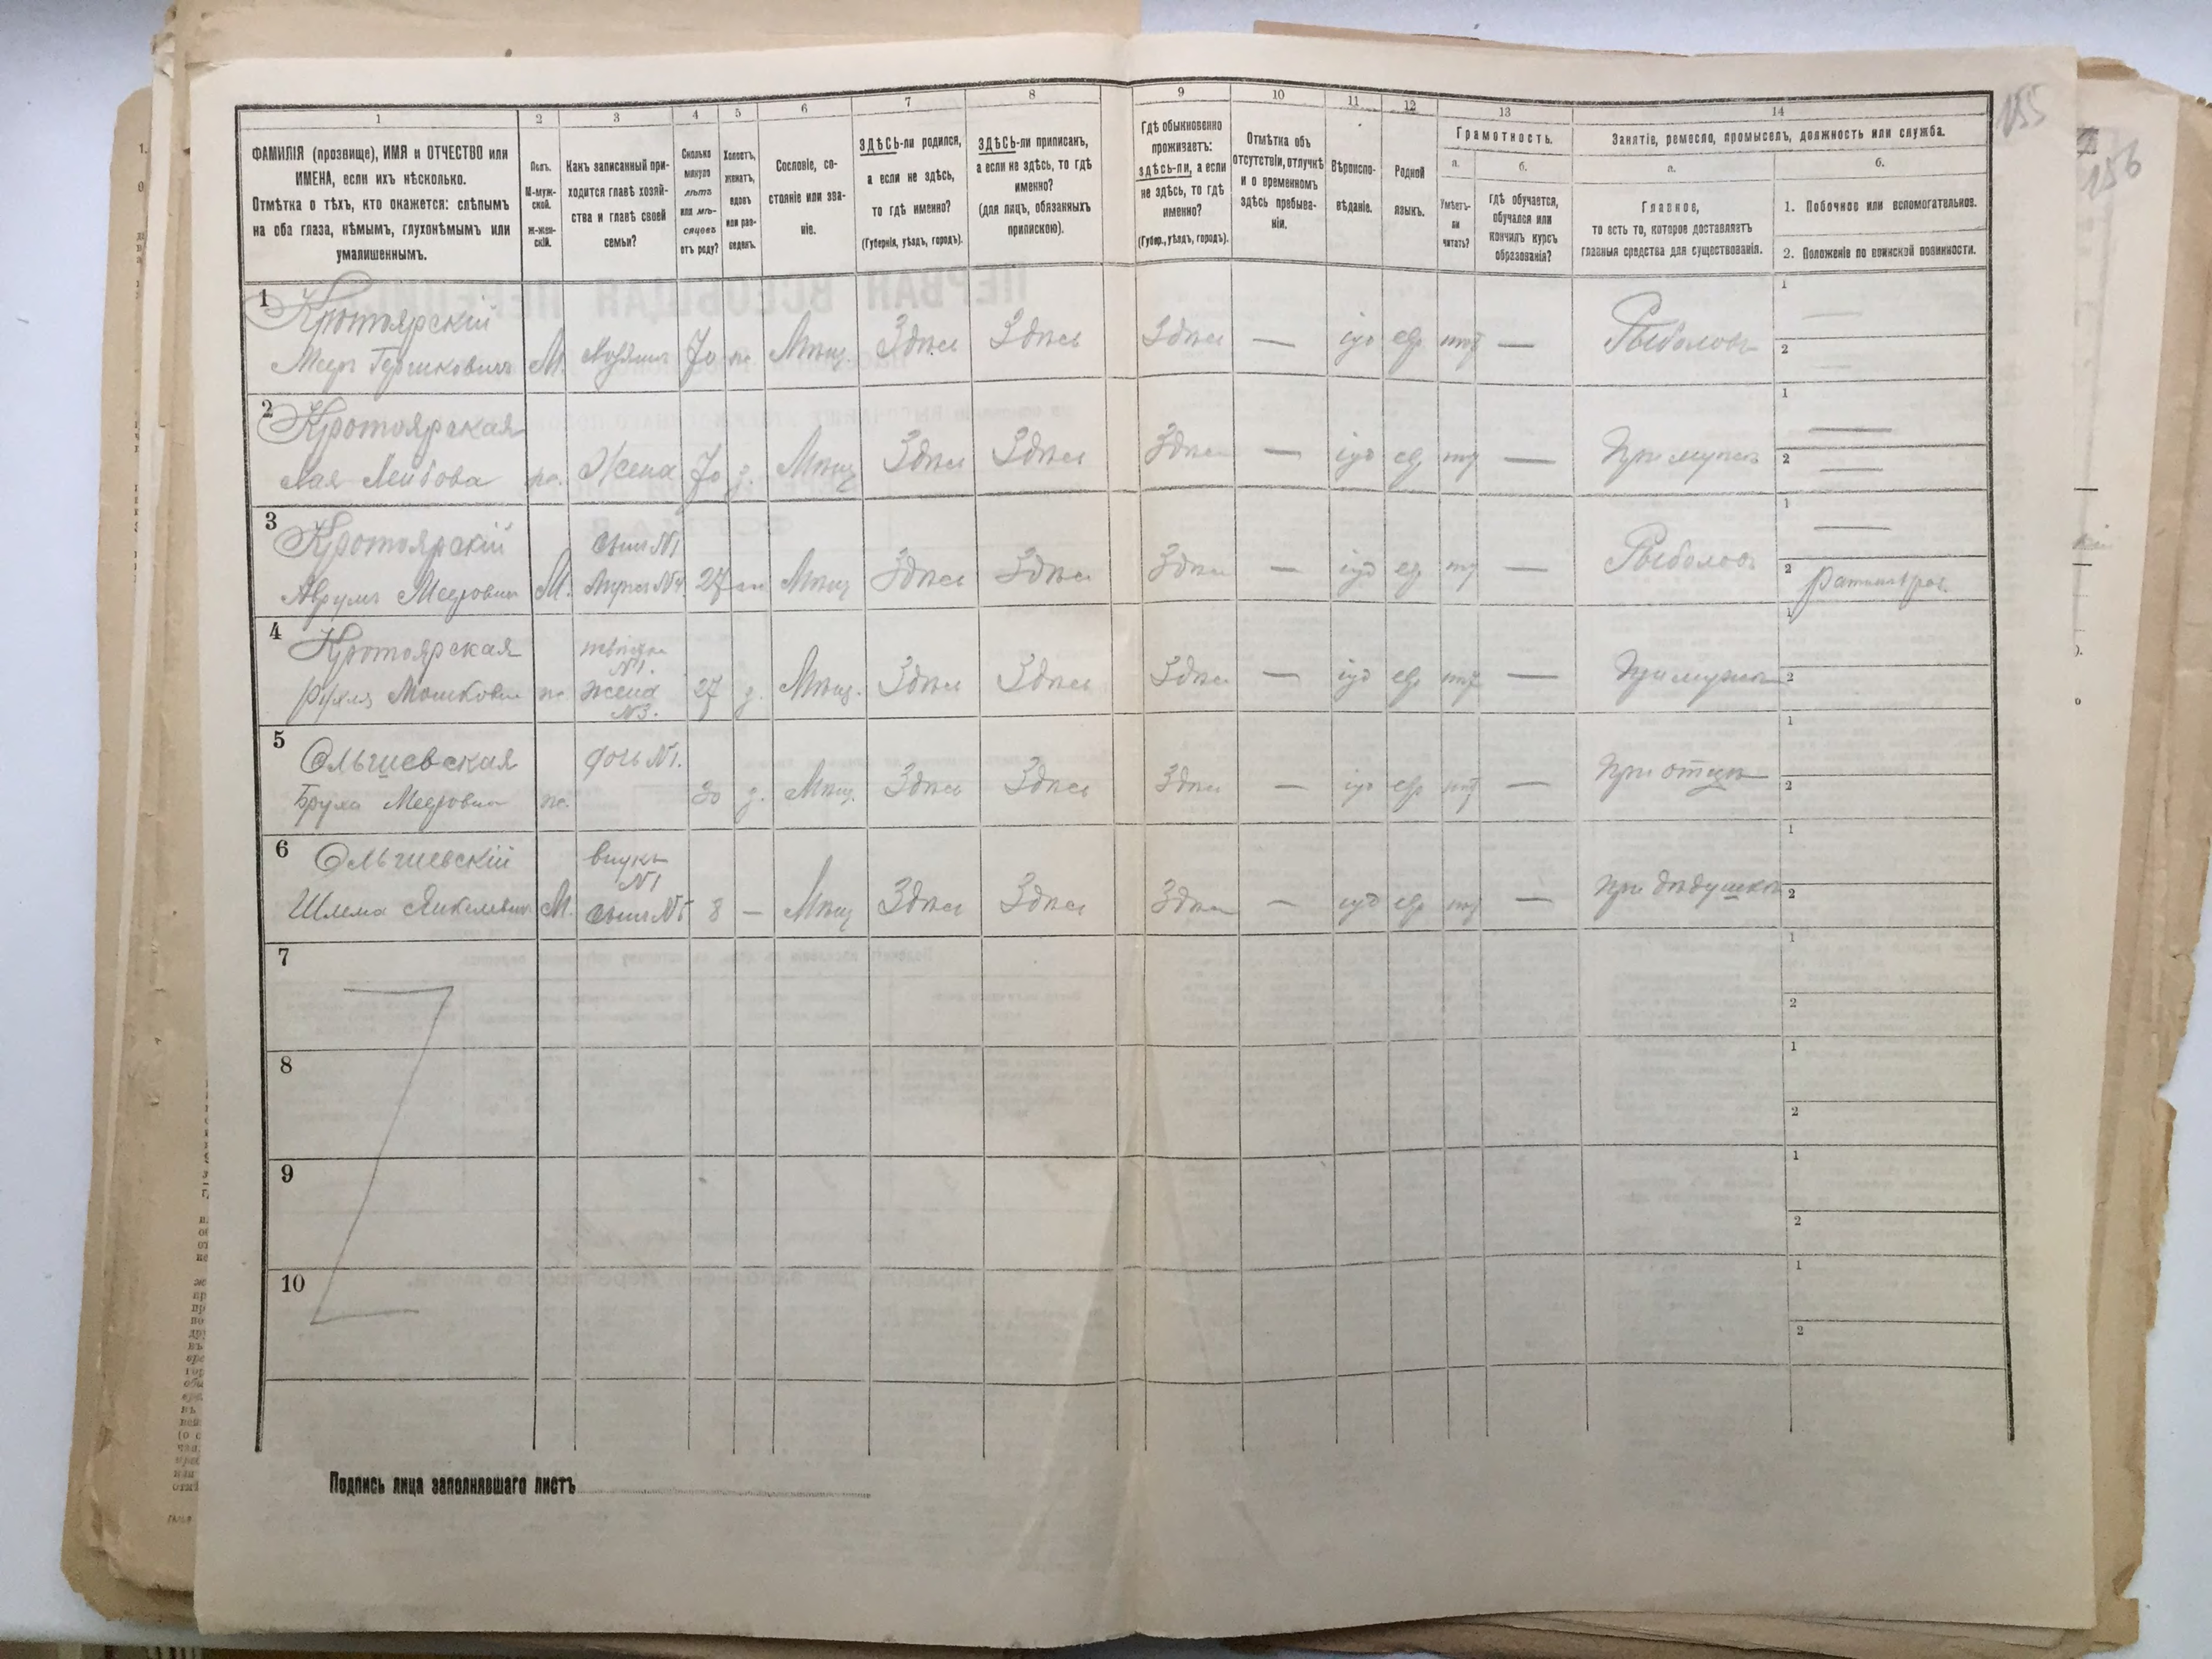 155
156
1
2
3
4
5
6
7
8
9
10
11
12
13
14
ФАМИЛІЯ (прозвище), ИМЯ и ОТЧЕСТВО или
ИМЕНА, если ихъ нѣсколько.
Отмѣтка о тѣхъ, кто окажется: слѣпымъ
на оба глаза, нѣмымъ, глухонѣмымъ или
умалишеннымъ.
Полъ.
М-муж-
ской.
Ж-жен-
скій.
Какъ записанный при-
ходится главѣ хозяй-
ства и главѣ своей
семьи?
Сколько
минуло
лѣтъ
или мѣ-
сяцевъ
отъ роду?
Холостъ,
женатъ,
вдовъ
или раз-
веденъ.
Сословіе, со-
стояніе или зва-
ніе.
ЗДѢСЬ-ли родился,
а если не здѣсь,
то гдѣ именно?
(Губернія, уѣздъ, городъ).
ЗДѢСЬ-ли приписанъ,
а если не здѣсь, то гдѣ
именно?
(для лицъ, обязанныхъ
припискою).
Гдѣ обыкновенно
проживаетъ:
здѣсь-ли, а если
не здѣсь, то гдѣ
именно?
(Губер., уѣздъ, городъ).
Отмѣтка объ
отсутствіи, отлучкѣ
и о временномъ
здѣсь пребыва-
ніи.
Вѣроиспо-
вѣданіе.
Родной
языкъ.
Грамотность.
а.
Умѣетъ-
ли
читать?
б.
гдѣ обучается,
обучался или
кончилъ курсъ
образованія?
Занятіе, ремесло, промыселъ, должность или служба.
а.
Главное,
то есть то, которое доставляетъ
главныя средства для существованія.
б.
1. Побочное или вспомогательное.
2. Положеніе по воинской повинности.
1
Кротоярскій
Меер Гершковичъ М. 70 Мѣщ. Здѣсь Здѣсь Здѣсь — іуд евр — Рыболовъ
1
2
2
Кротоярская
Лея Лейбова ж. Жена 70 з. Мѣщ Здѣсь Здѣсь Здѣсь — іуд евр — При мужѣ
1
2
3
Кротоярскій сынъ №1
Аврумъ Мееровичъ М. мужъ №4 27 Мѣщ Здѣсь Здѣсь Здѣсь — іуд евр — Рыболовъ
1
2
4
Кротоярская
№1.
Мошкова ж. жена 27 з. Мѣщ. Здѣсь Здѣсь Здѣсь — іуд евр — При мужѣ
№3.
1
2
5
Ольгиевская дочь №1.
Мееровна ж. 30 з. Мѣщ. Здѣсь Здѣсь Здѣсь — іуд евр — При отцѣ
1
2
6
Ольгиевскій внукъ
№1
Шлема Янкелевичъ М. сынъ №5 8 — Мѣщ Здѣсь Здѣсь Здѣсь — іуд евр — При дѣдушкѣ
1
2
7
1
2
8
1
2
9
1
2
10
1
2
Подпись лица заполнявшаго листъ